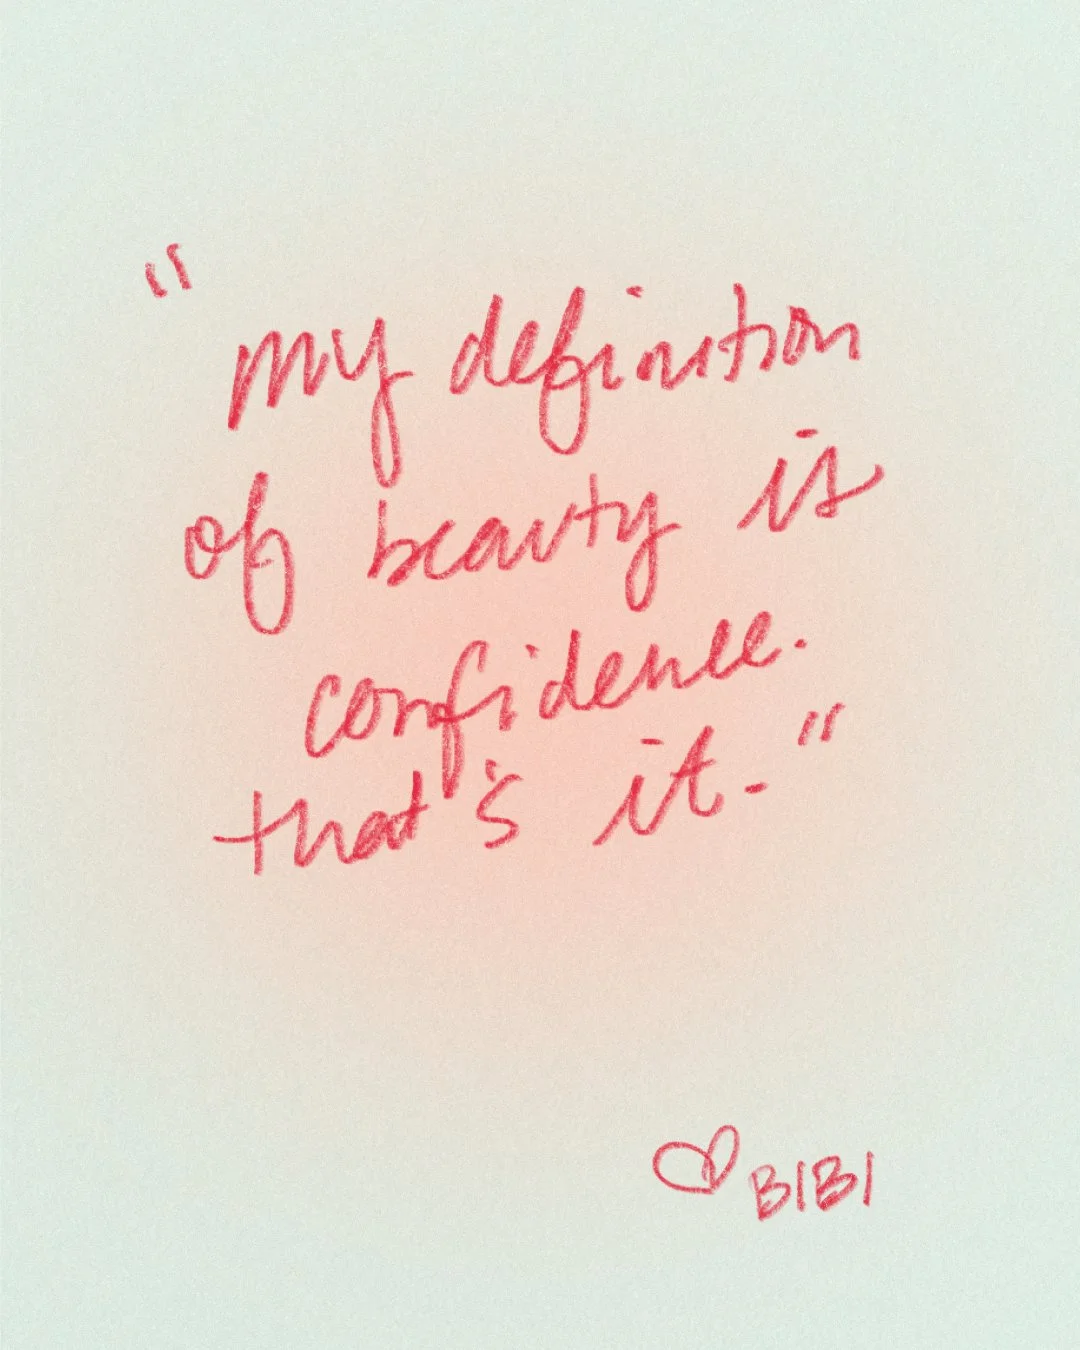 "my definition
of beauty is
confidence.
that's it."
♡ BIBI